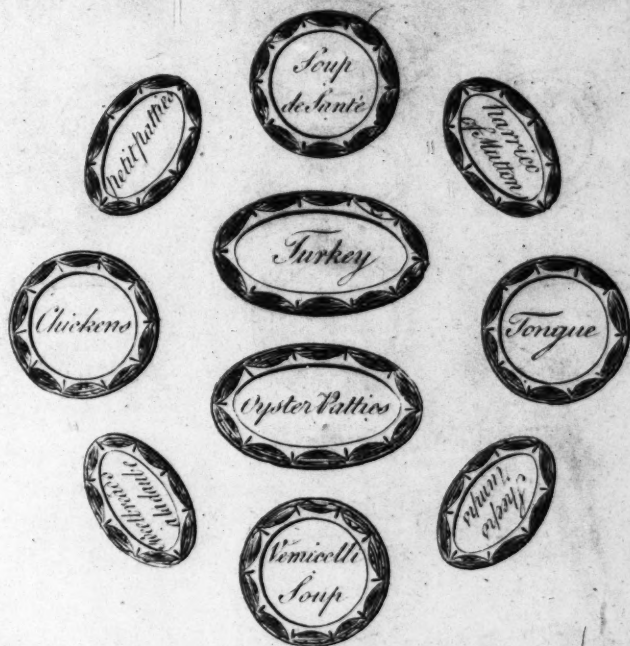 Soup
de Santé
petit patties
harrico
of Mutton
Turkey
Chickens
Tongue
Oyster Patties
Sheeps
rumps
Vermicelli
Soup